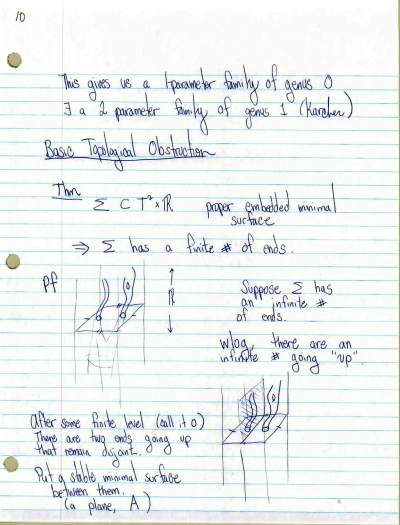 10
This gives us a 1-parameter family of genus 0
∃ a 2 parameter family of genus 1 (Karcher)
Basic Topological Obstruction
Thm
Σ ⊂ T² × ℝ proper embedded minimal
surface
⇒ Σ has a finite # of ends.
Pf
ℝ
Suppose Σ has
an infinite #
of ends.
wlog, there are an
infinite # going "up".
After some finite level (call it 0)
There are two ends going up
that remain disjoint.
Put a stable minimal surface
between them.
(a plane, A)